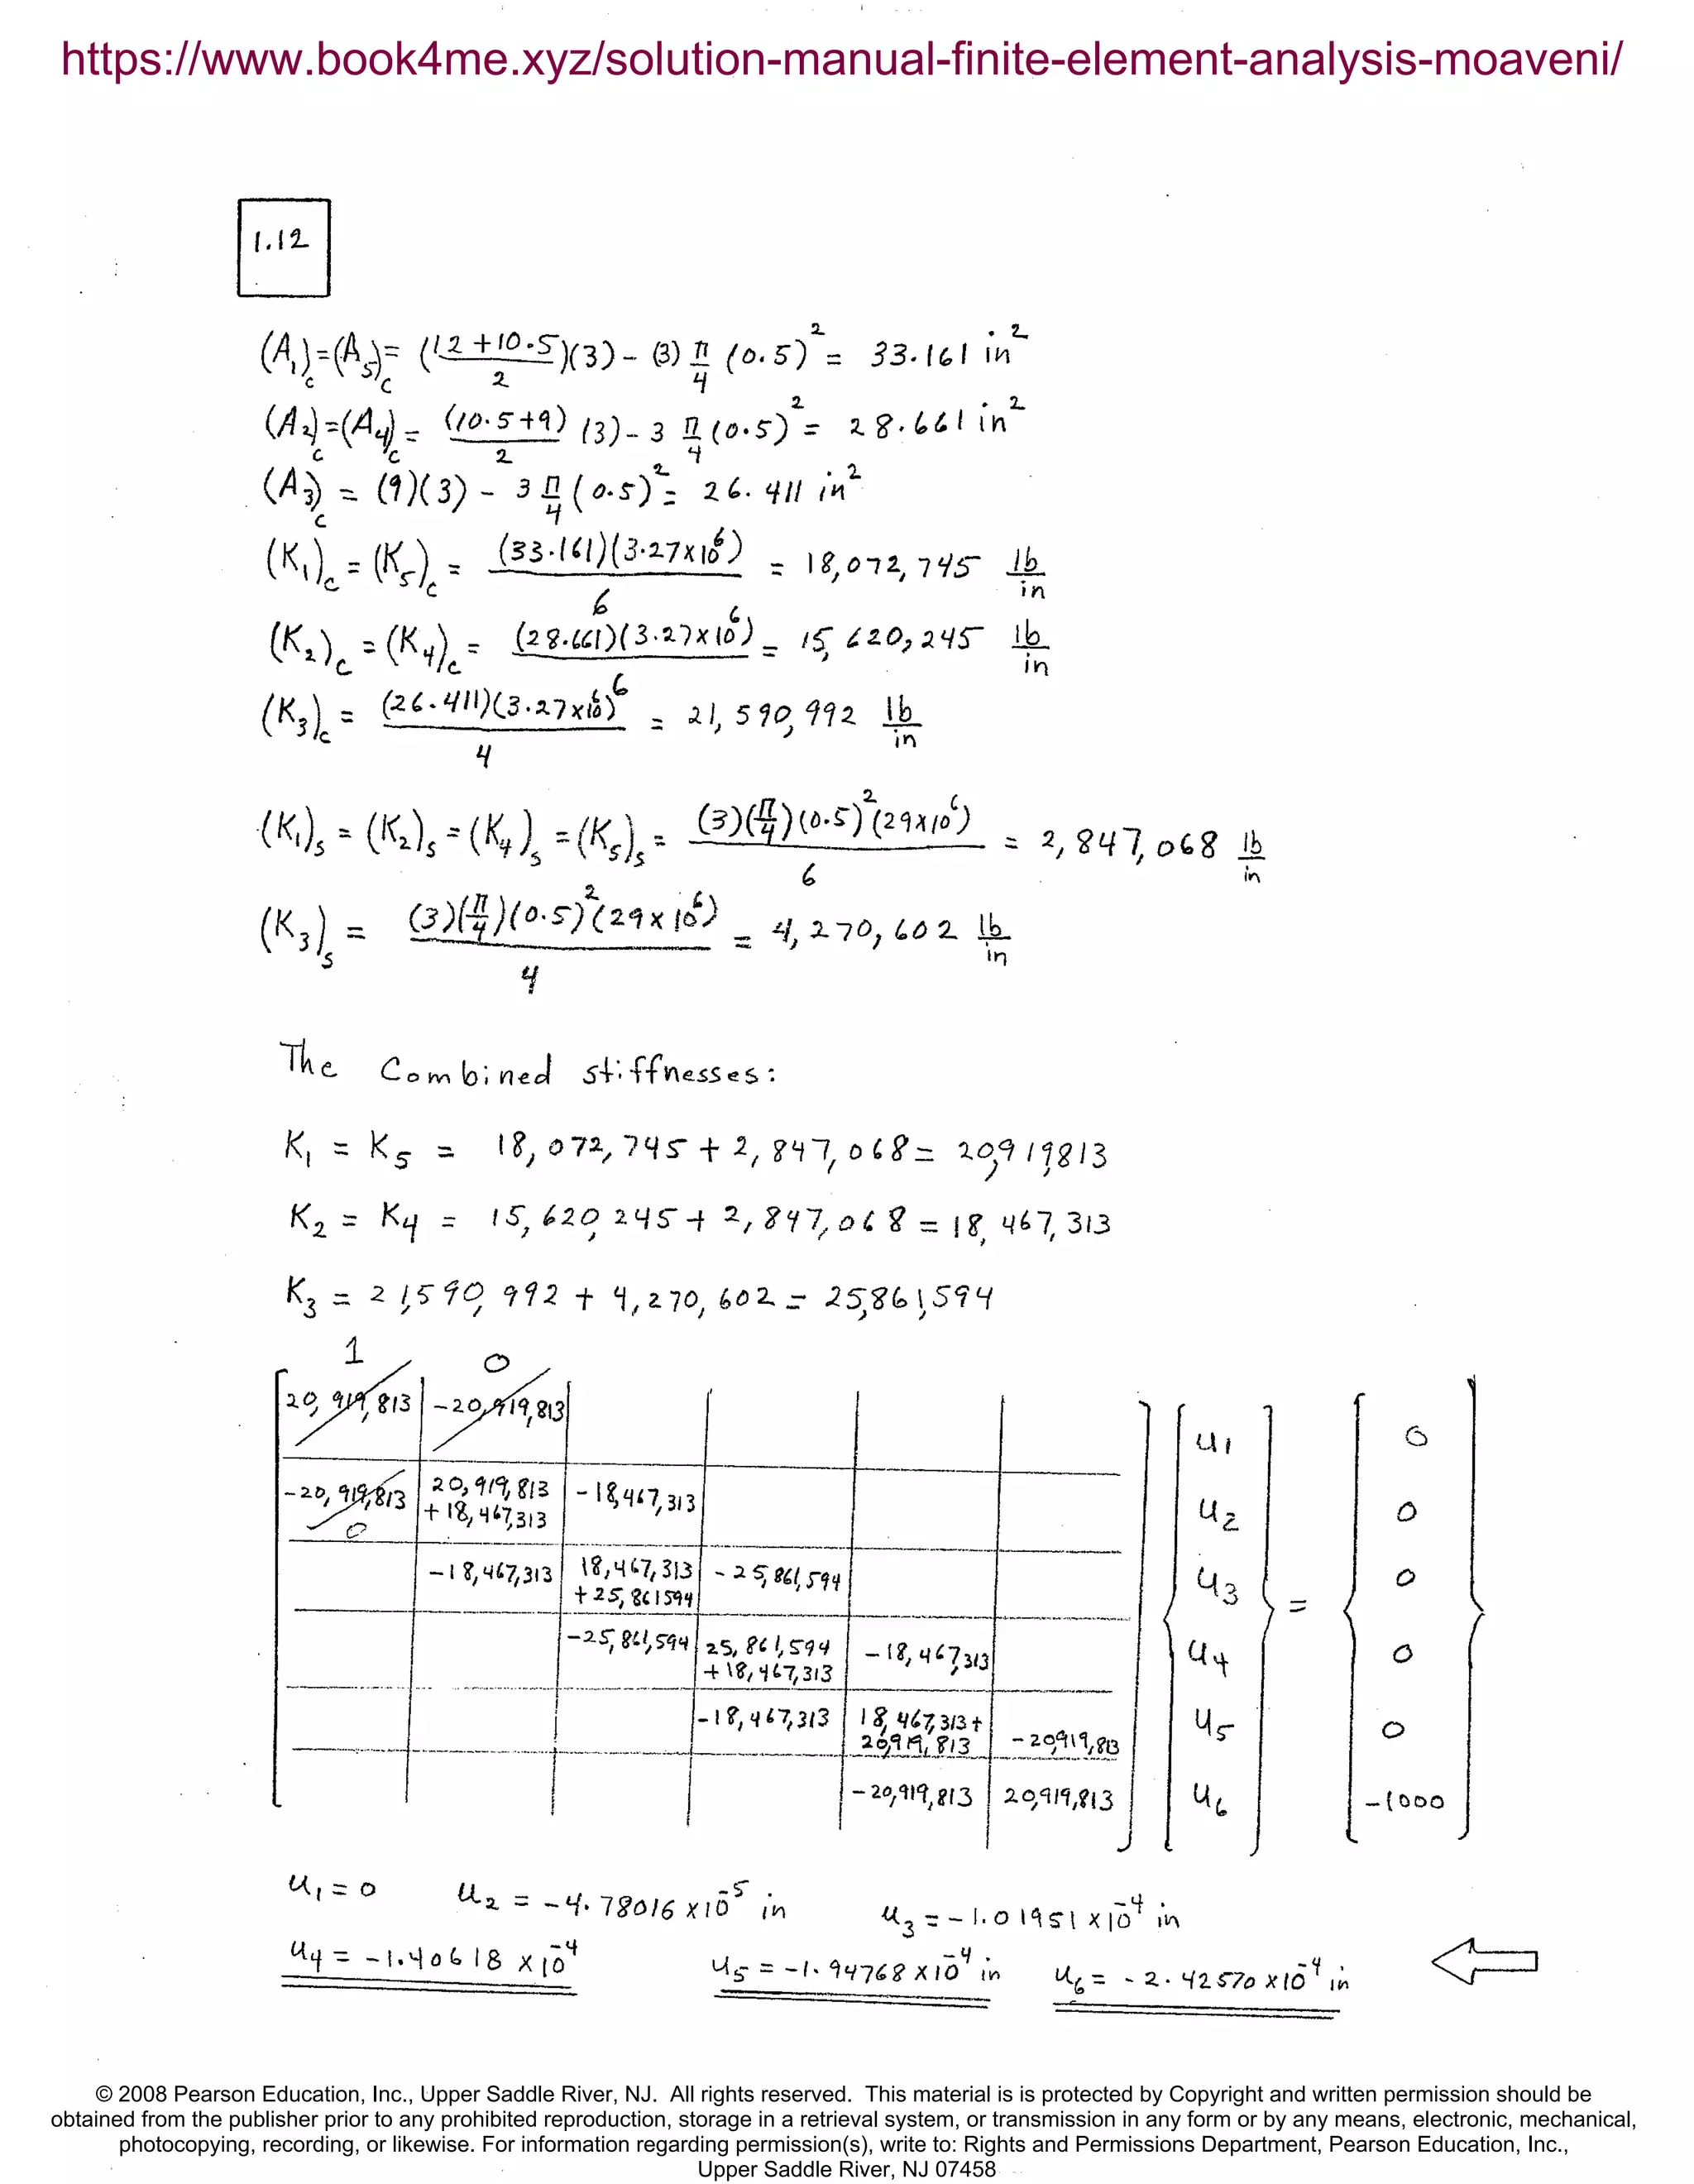 https://www.book4me.xyz/solution-manual-finite-element-analysis-moaveni/
1.12
(A₁)c = (A₅)c = (12+10.5)/2 (3) - (3) π/4 (0.5)² = 33.161 in²
(A₂)c = (A₄)c = (10.5+9)/2 (3) - 3 π/4 (0.5)² = 28.661 in²
(A₃)c = (9)(3) - 3 π/4 (0.5)² = 26.411 in²
(K₁)c = (K₅)c = (33.161)(3.27x10⁶)/6 = 18,072,745 lb/in
(K₂)c = (K₄)c = (28.661)(3.27x10⁶)/6 = 15,620,245 lb/in
(K₃)c = (26.411)(3.27x10⁶)/4 = 21,590,992 lb/in
(K₁)s = (K₂)s = (K₄)s = (K₅)s = (3)(π/4)(0.5)²(29x10⁶)/6 = 2,847,068 lb/in
(K₃)s = (3)(π/4)(0.5)²(29x10⁶)/4 = 4,270,602 lb/in
The Combined stiffnesses:
K₁ = K₅ = 18,072,745 + 2,847,068 = 20,919,813
K₂ = K₄ = 15,620,245 + 2,847,068 = 18,467,313
K₃ = 21,590,992 + 4,270,602 = 25,861,594
1 0
20,919,813 -20,919,813 u₁ 0
-20,919,813 0 20,919,813 + 18,467,313 -18,467,313 u₂ 0
-18,467,313 18,467,313 + 25,861594 -25,861,594 u₃ = 0
-25,861,594 25,861,594 + 18,467,313 -18,467,313 u₄ 0
-18,467,313 18,467,313 + 20,919,813 -20,919,813 u₅ 0
-20,919,813 20,919,813 u₆ -1000
u₁ = 0 u₂ = -4.78016 x10⁻⁵ in u₃ = -1.01951 x10⁻⁴ in
u₄ = -1.40618 x10⁻⁴ u₅ = -1.94768 x10⁻⁴ in u₆ = -2.42570 x10⁻⁴ in
© 2008 Pearson Education, Inc., Upper Saddle River, NJ. All rights reserved. This material is is protected by Copyright and written permission should be
obtained from the publisher prior to any prohibited reproduction, storage in a retrieval system, or transmission in any form or by any means, electronic, mechanical,
photocopying, recording, or likewise. For information regarding permission(s), write to: Rights and Permissions Department, Pearson Education, Inc.,
Upper Saddle River, NJ 07458